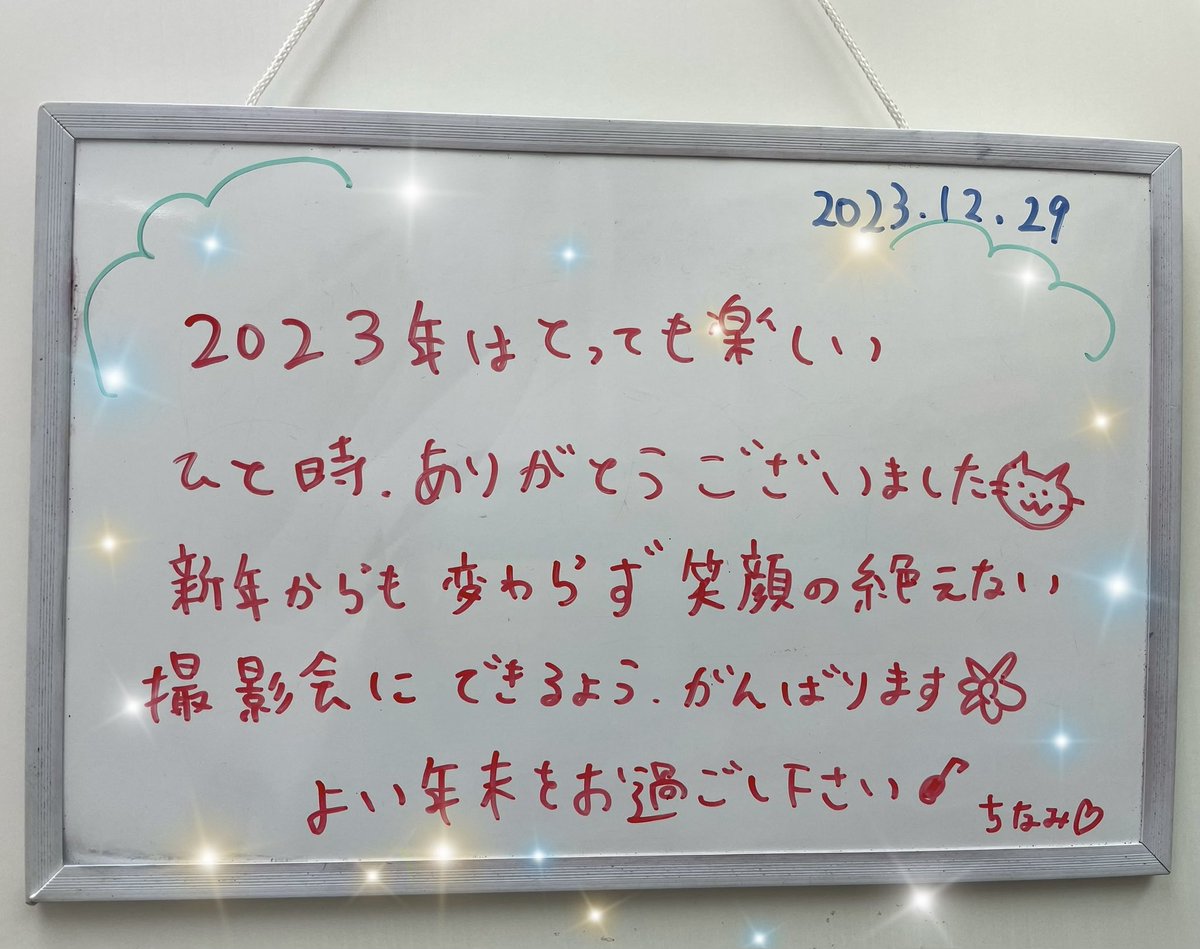 2023.12.29
2023年はとっても楽しい
ひと時、ありがとうございました
新年からも変わらず笑顔の絶えない
撮影会にできるよう、がんばります
よい年末をお過ごし下さい♪
ちなみ♡